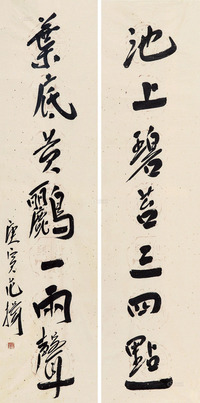 池上碧苔三四點
葉底黃鸝一兩聲
庚寅范揚